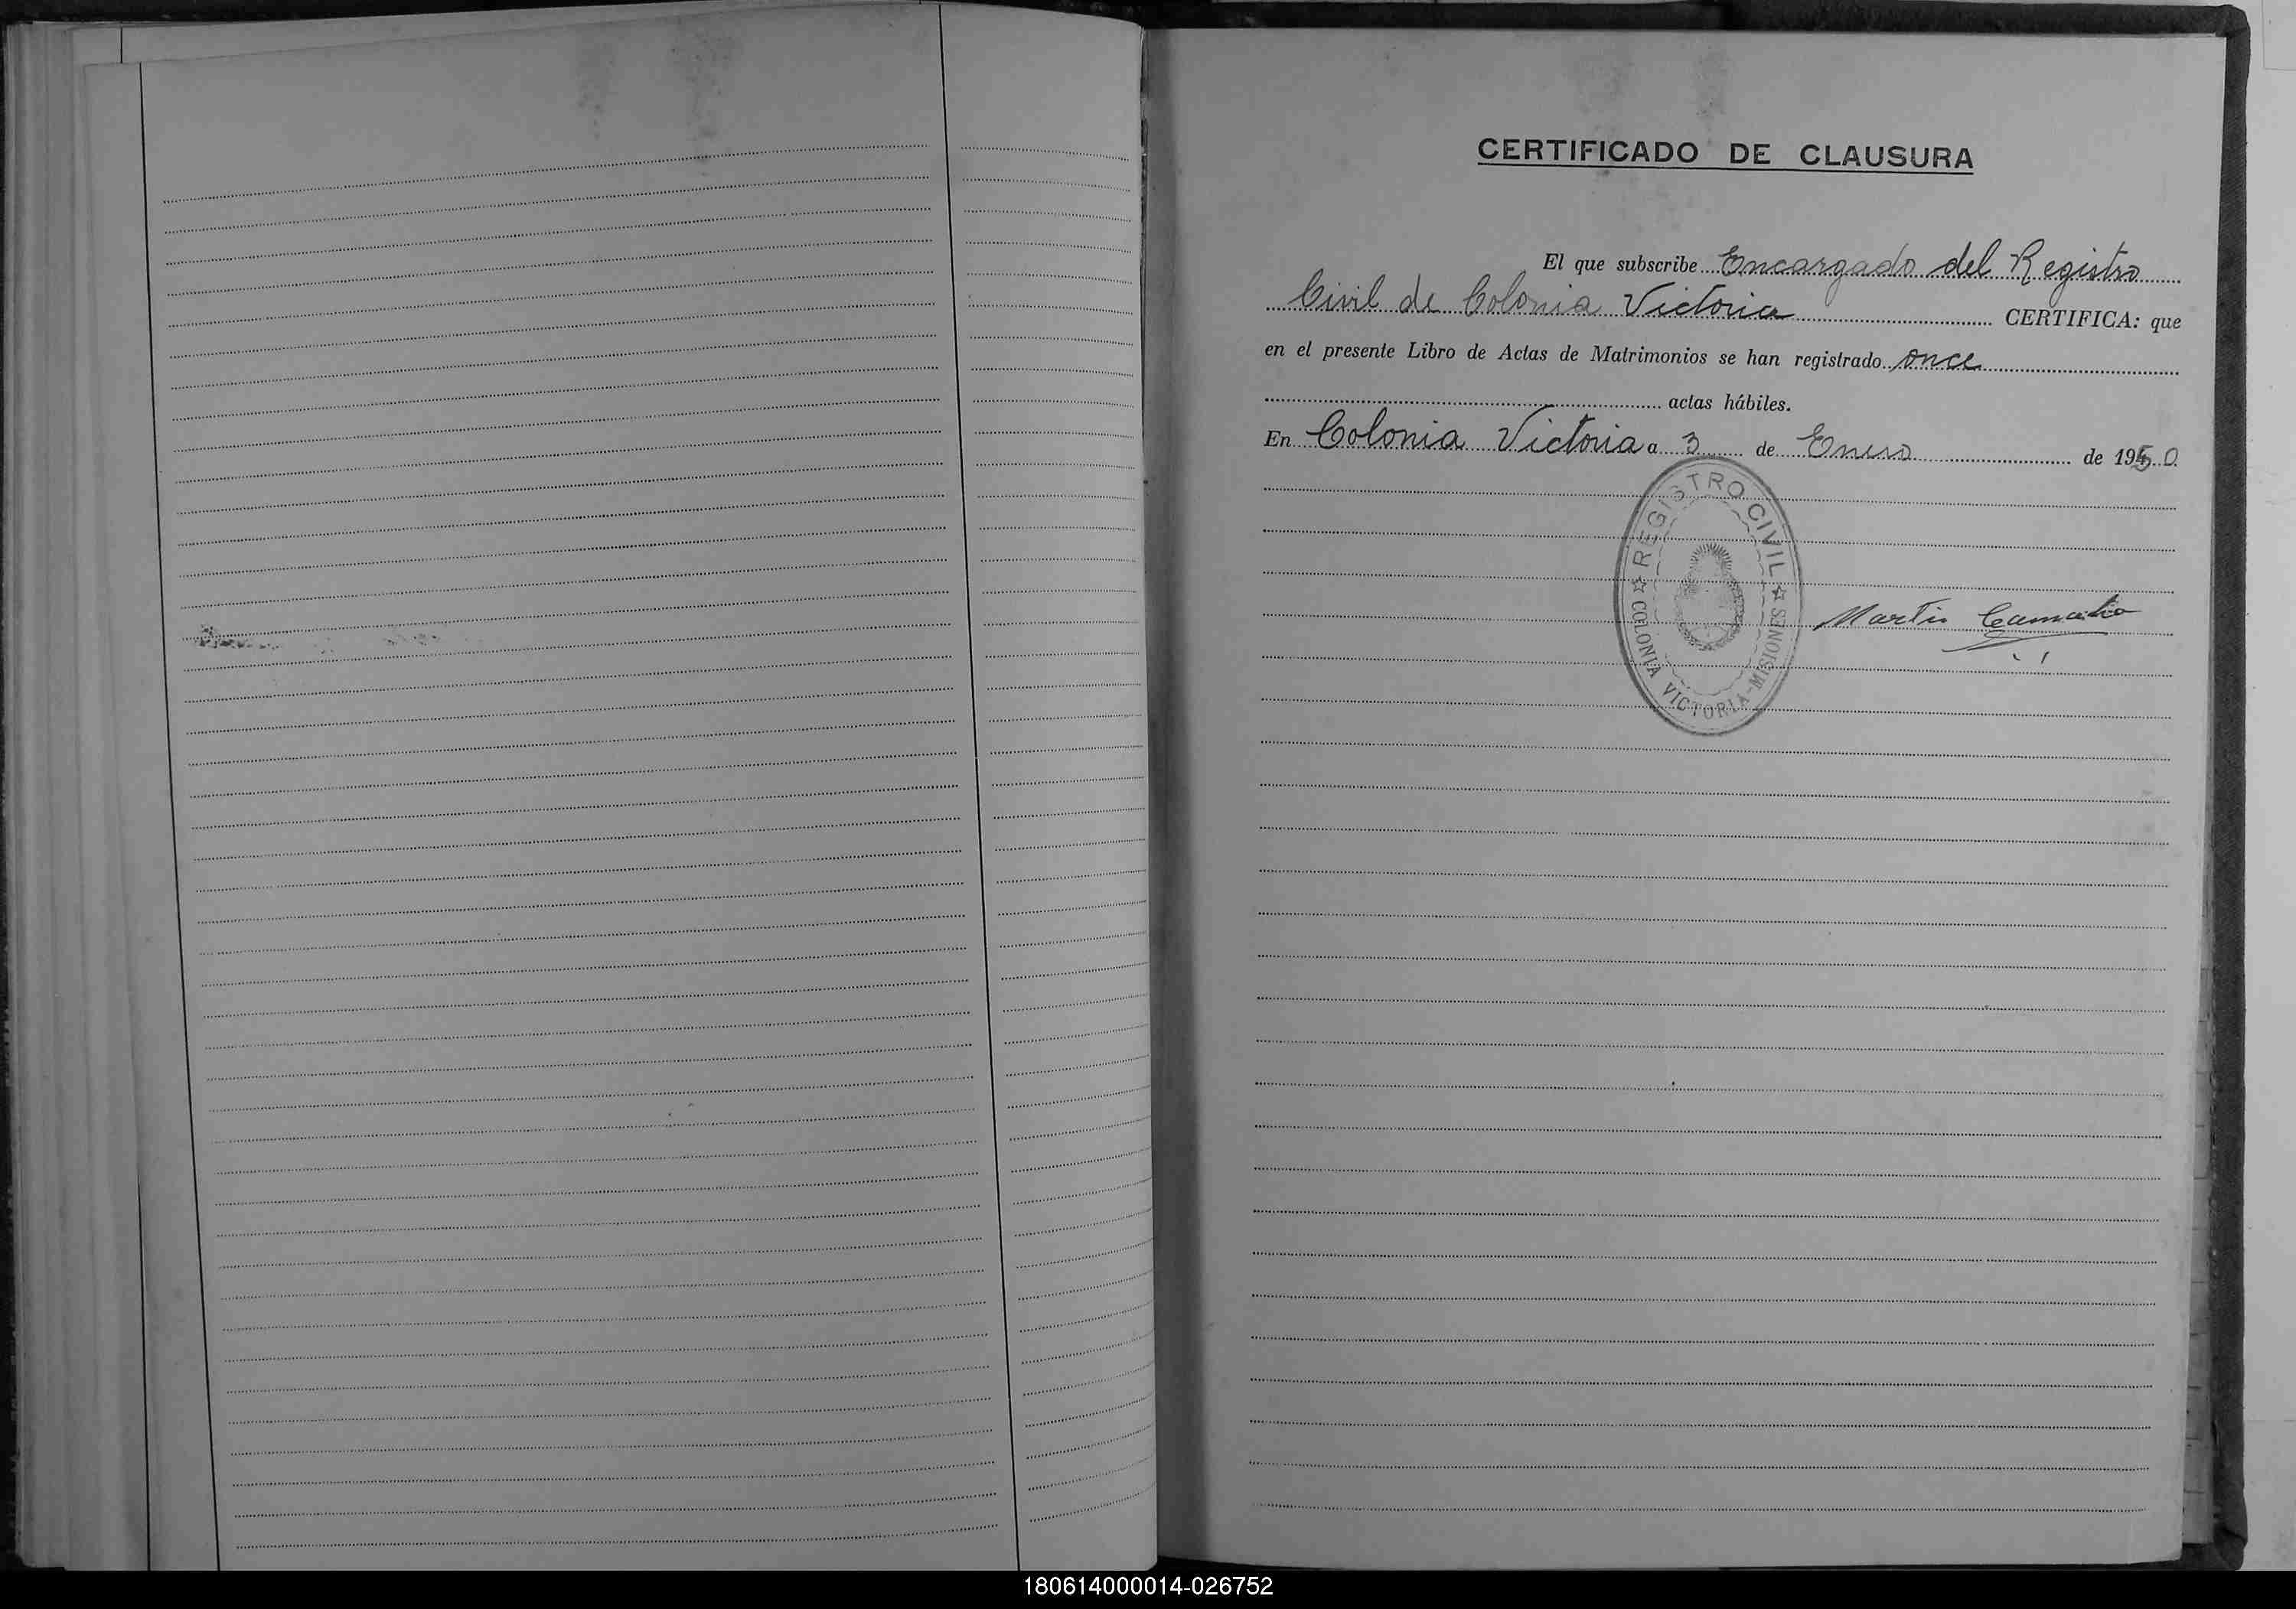 CERTIFICADO DE CLAUSURA
El que subscribe Encargado del Registro
Civil de Colonia Victoria CERTIFICA: que
en el presente Libro de Actas de Matrimonios se han registrado once
actas hábiles.
En Colonia Victoria a 3 de Enero de 1950
REGISTRO CIVIL
COLONIA VICTORIA-MISIONES
Martin
180614000014-026752